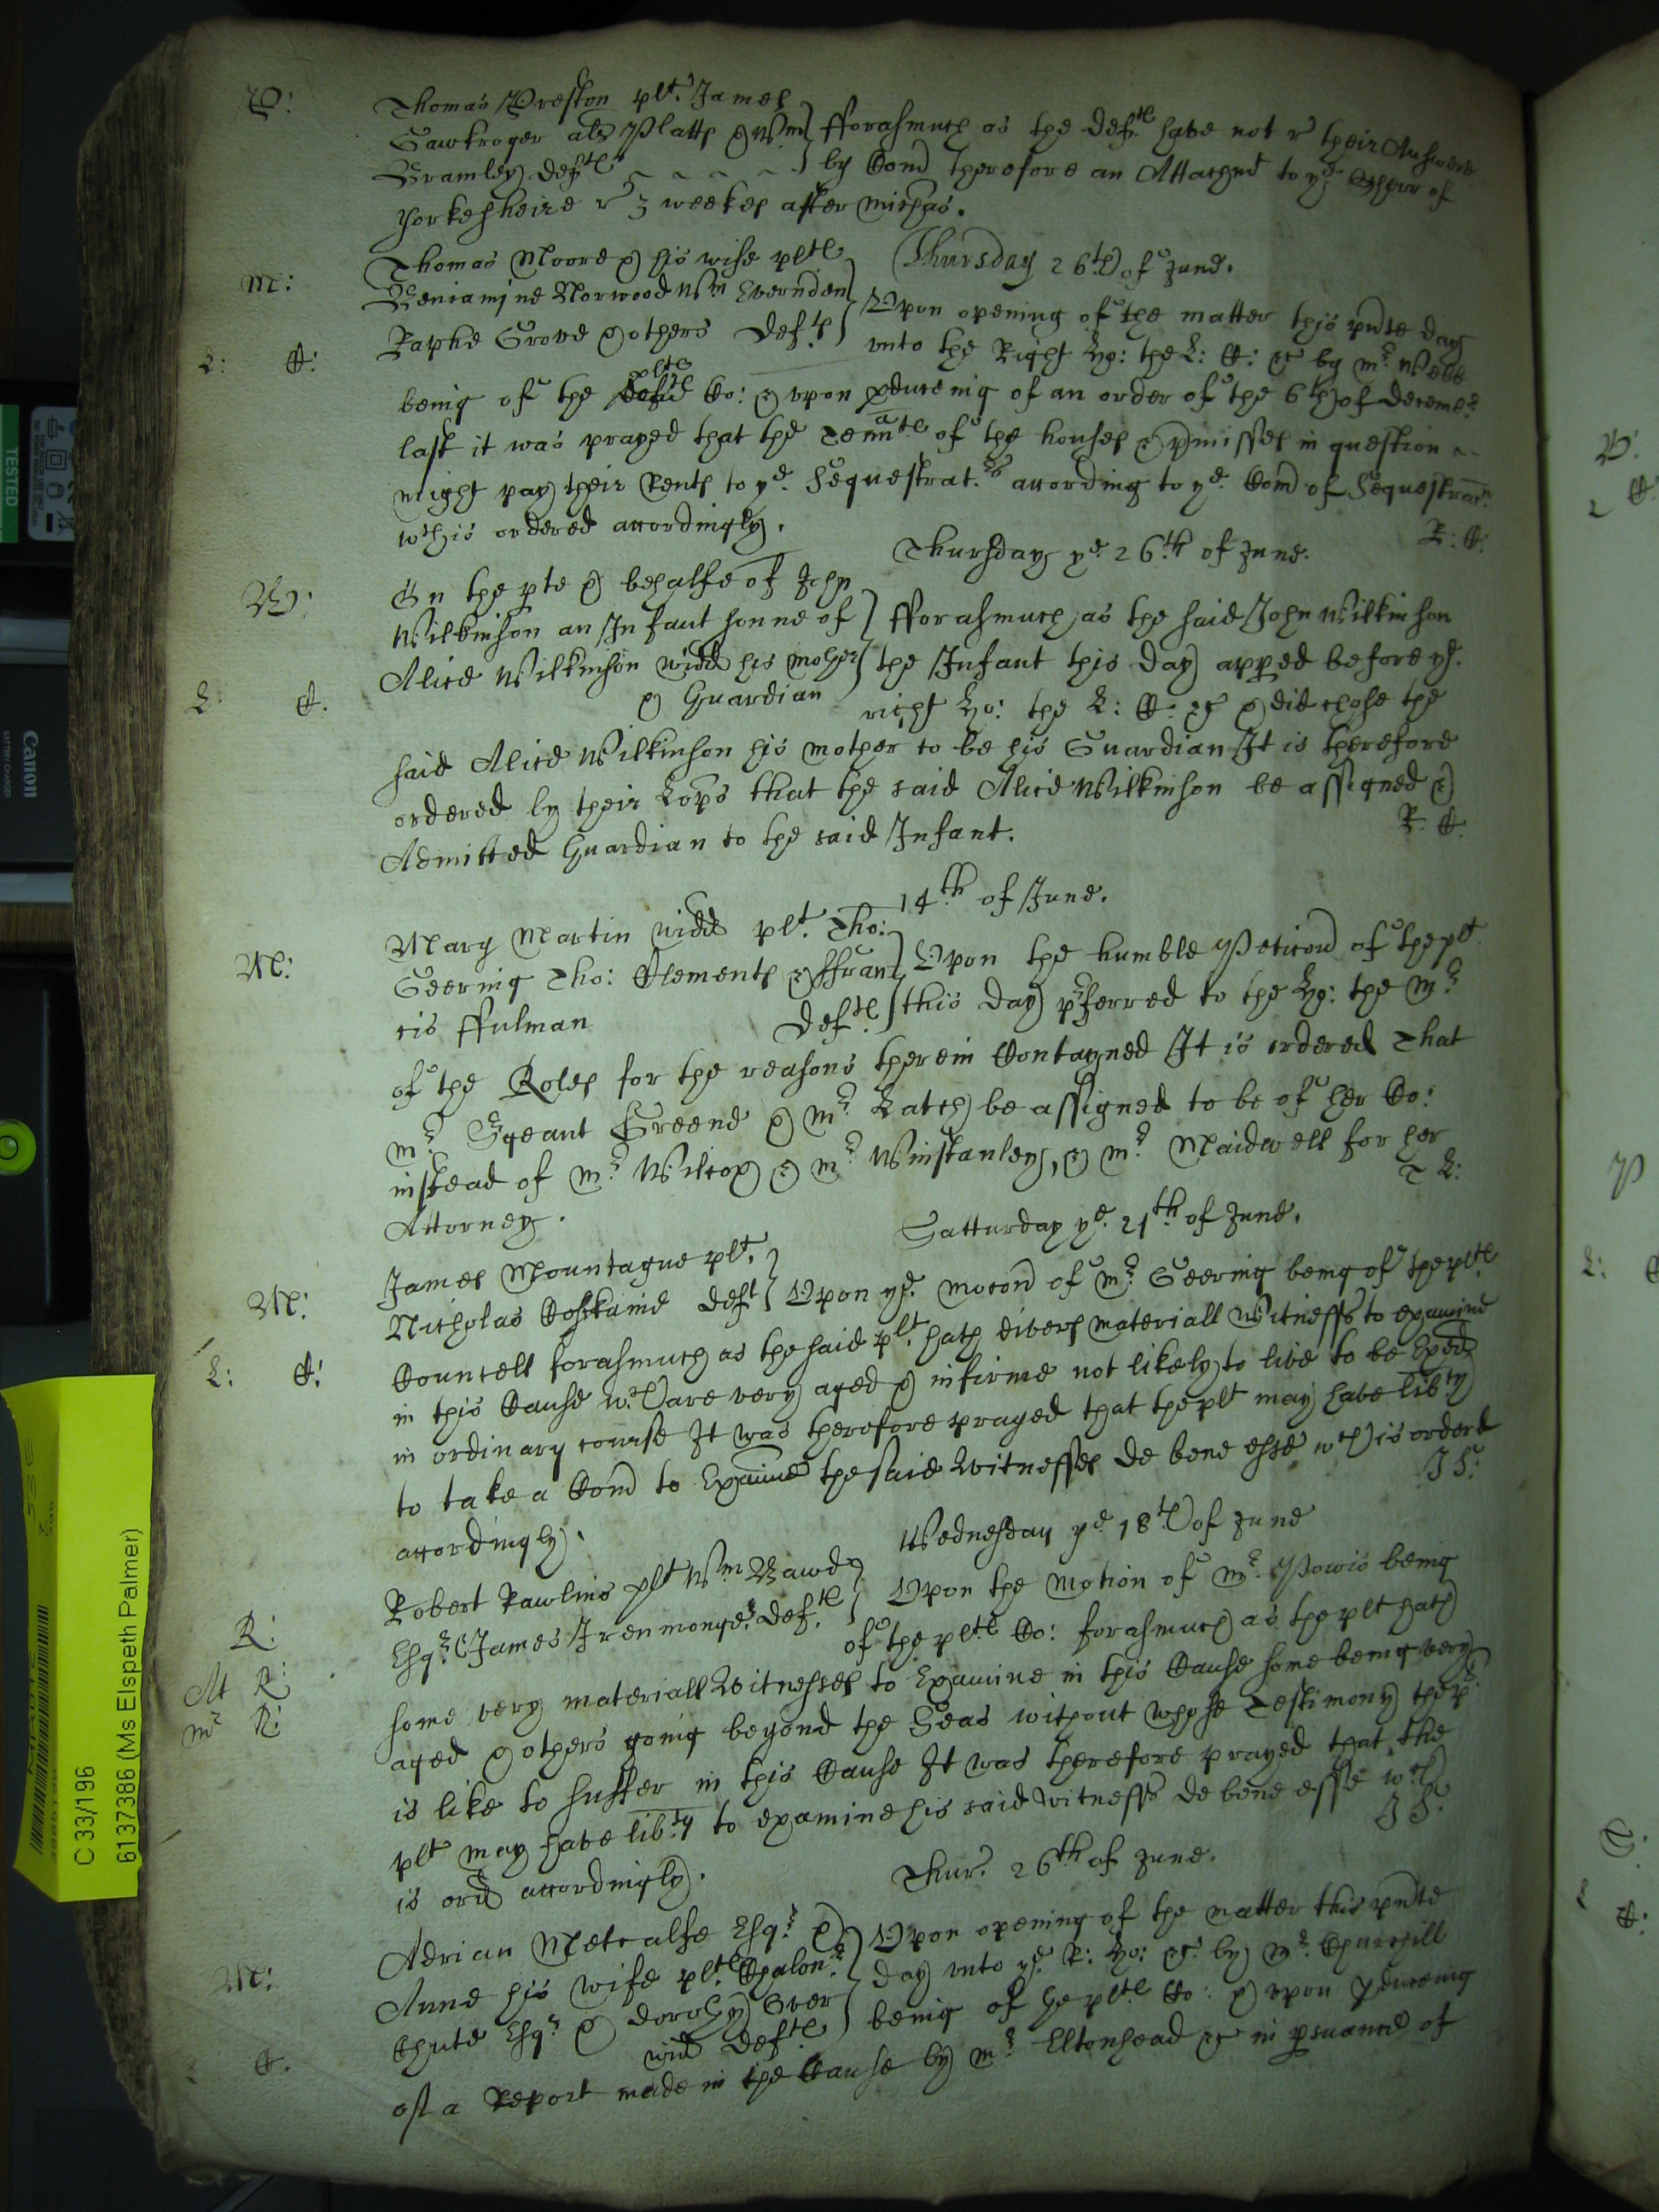 P:
Thomas Preston plt. James
Sawkroger als Platts & Wm } fforasmuch as the Defts. have not r their Answere
Bramley Defts. } by Com̄ therefore an Attachmt to ye Sherr of
Yorkesheire r 3 weekes after Michas.
Thursday 26th of June.
M:
Thomas Moore & his wife plts
Beniamine Norwood Wm Evernden } Upon opening of the matter this pnte day
Raphe Grove & others Defts. } unto the Right Ho: the L: C: &c by mr. Webb
L: C:
being of the plts Co: & upon pduceing of an order of the 6th of Decembr.
last it was prayed that the Tennts of the houses & pmisses in question
might pay their Rents to ye. Sequestrat.rs according to ye. Com̄ of Sequestracn.
wch is ordered accordingly.
R: C:
Thursday ye. 26th of June.
W:
On the pte & behalfe of John
Wilkinson an Infant sonne of } fforasmuch as the said John Wilkinson
Alice Wilkinson widd his mother } the Infant this day apped before ye.
& Guardian right Ho: the L: C: &c & did chose the
L: C.
said Alice Wilkinson his mother to be his Guardian It is therefore
ordered by their Lopps that the said Alice Wilkinson be assigned &
Admitted Guardian to the said Infant.
R. C.
14th of June.
M:
Mary Martin widd plt. Tho:
Geering Tho: Clements & ffran } Upon the humble Peticon of the plt
cis ffulman Defts. } this day pferred to the Ho: the Mr.
of the Roles for the reasons therein Contayned It is ordered That
mr. Sgeant Greene & mr. Latch be assigned to be of her Co:
instead of mr. Wilcox & mr. Winstanley, & mr. Maidwell for her
Attorney.
T L:
Satturday ye. 21th of June.
M:
James Mountague plt.
Nicholas Deft } Upon ye. mocon of mr. Geering being of the plts
L: C:
Councell forasmuch as the said plt. hath divers materiall Witnesss to examine
in this Cause wch are very aged & infirme not likely to live to be Exed
in ordinary course It was therefore prayed that the plt may have libty
to take a Com̄ to Examine the said Witnesses de bene esse wch is orderd
accordingly.
J S:
Wednesday ye 18th of June
R:
At R:
mr R:
Robert Rawlins plt Wm Bawd
Esqr. James Iremonger. Defts. } Upon the Motion of mr. Powis being
of the plts Co: forasmuch as the plt hath
some very materiall Witnesses to Examine in this Cause some being very
aged & others going beyond the Seas without whose Testimony the p
is like to suffer in this Cause It was therefore prayed that the
plt may have libty to examine his said Witnesss de bene esse wch
is ord accordingly.
J S:
Thur. 26th of June.
M:
Adrian Metcalfe Esqr. &
Anne his wife plts Chalonr. } Upon opening of the matter this pnte
Chute Esqr. & Dorothy Over } day unto ye. R: Ho: &c by mr. Churchill
wid Defts. } being of the plts Co: & upon pduceing
C.
of a Report made in the Cause by mr. Eltonhead &c in psuance of
TESTED
Canon
BATTERY CHARGER
C 33/196
6137386 (Ms Elspeth Palmer)